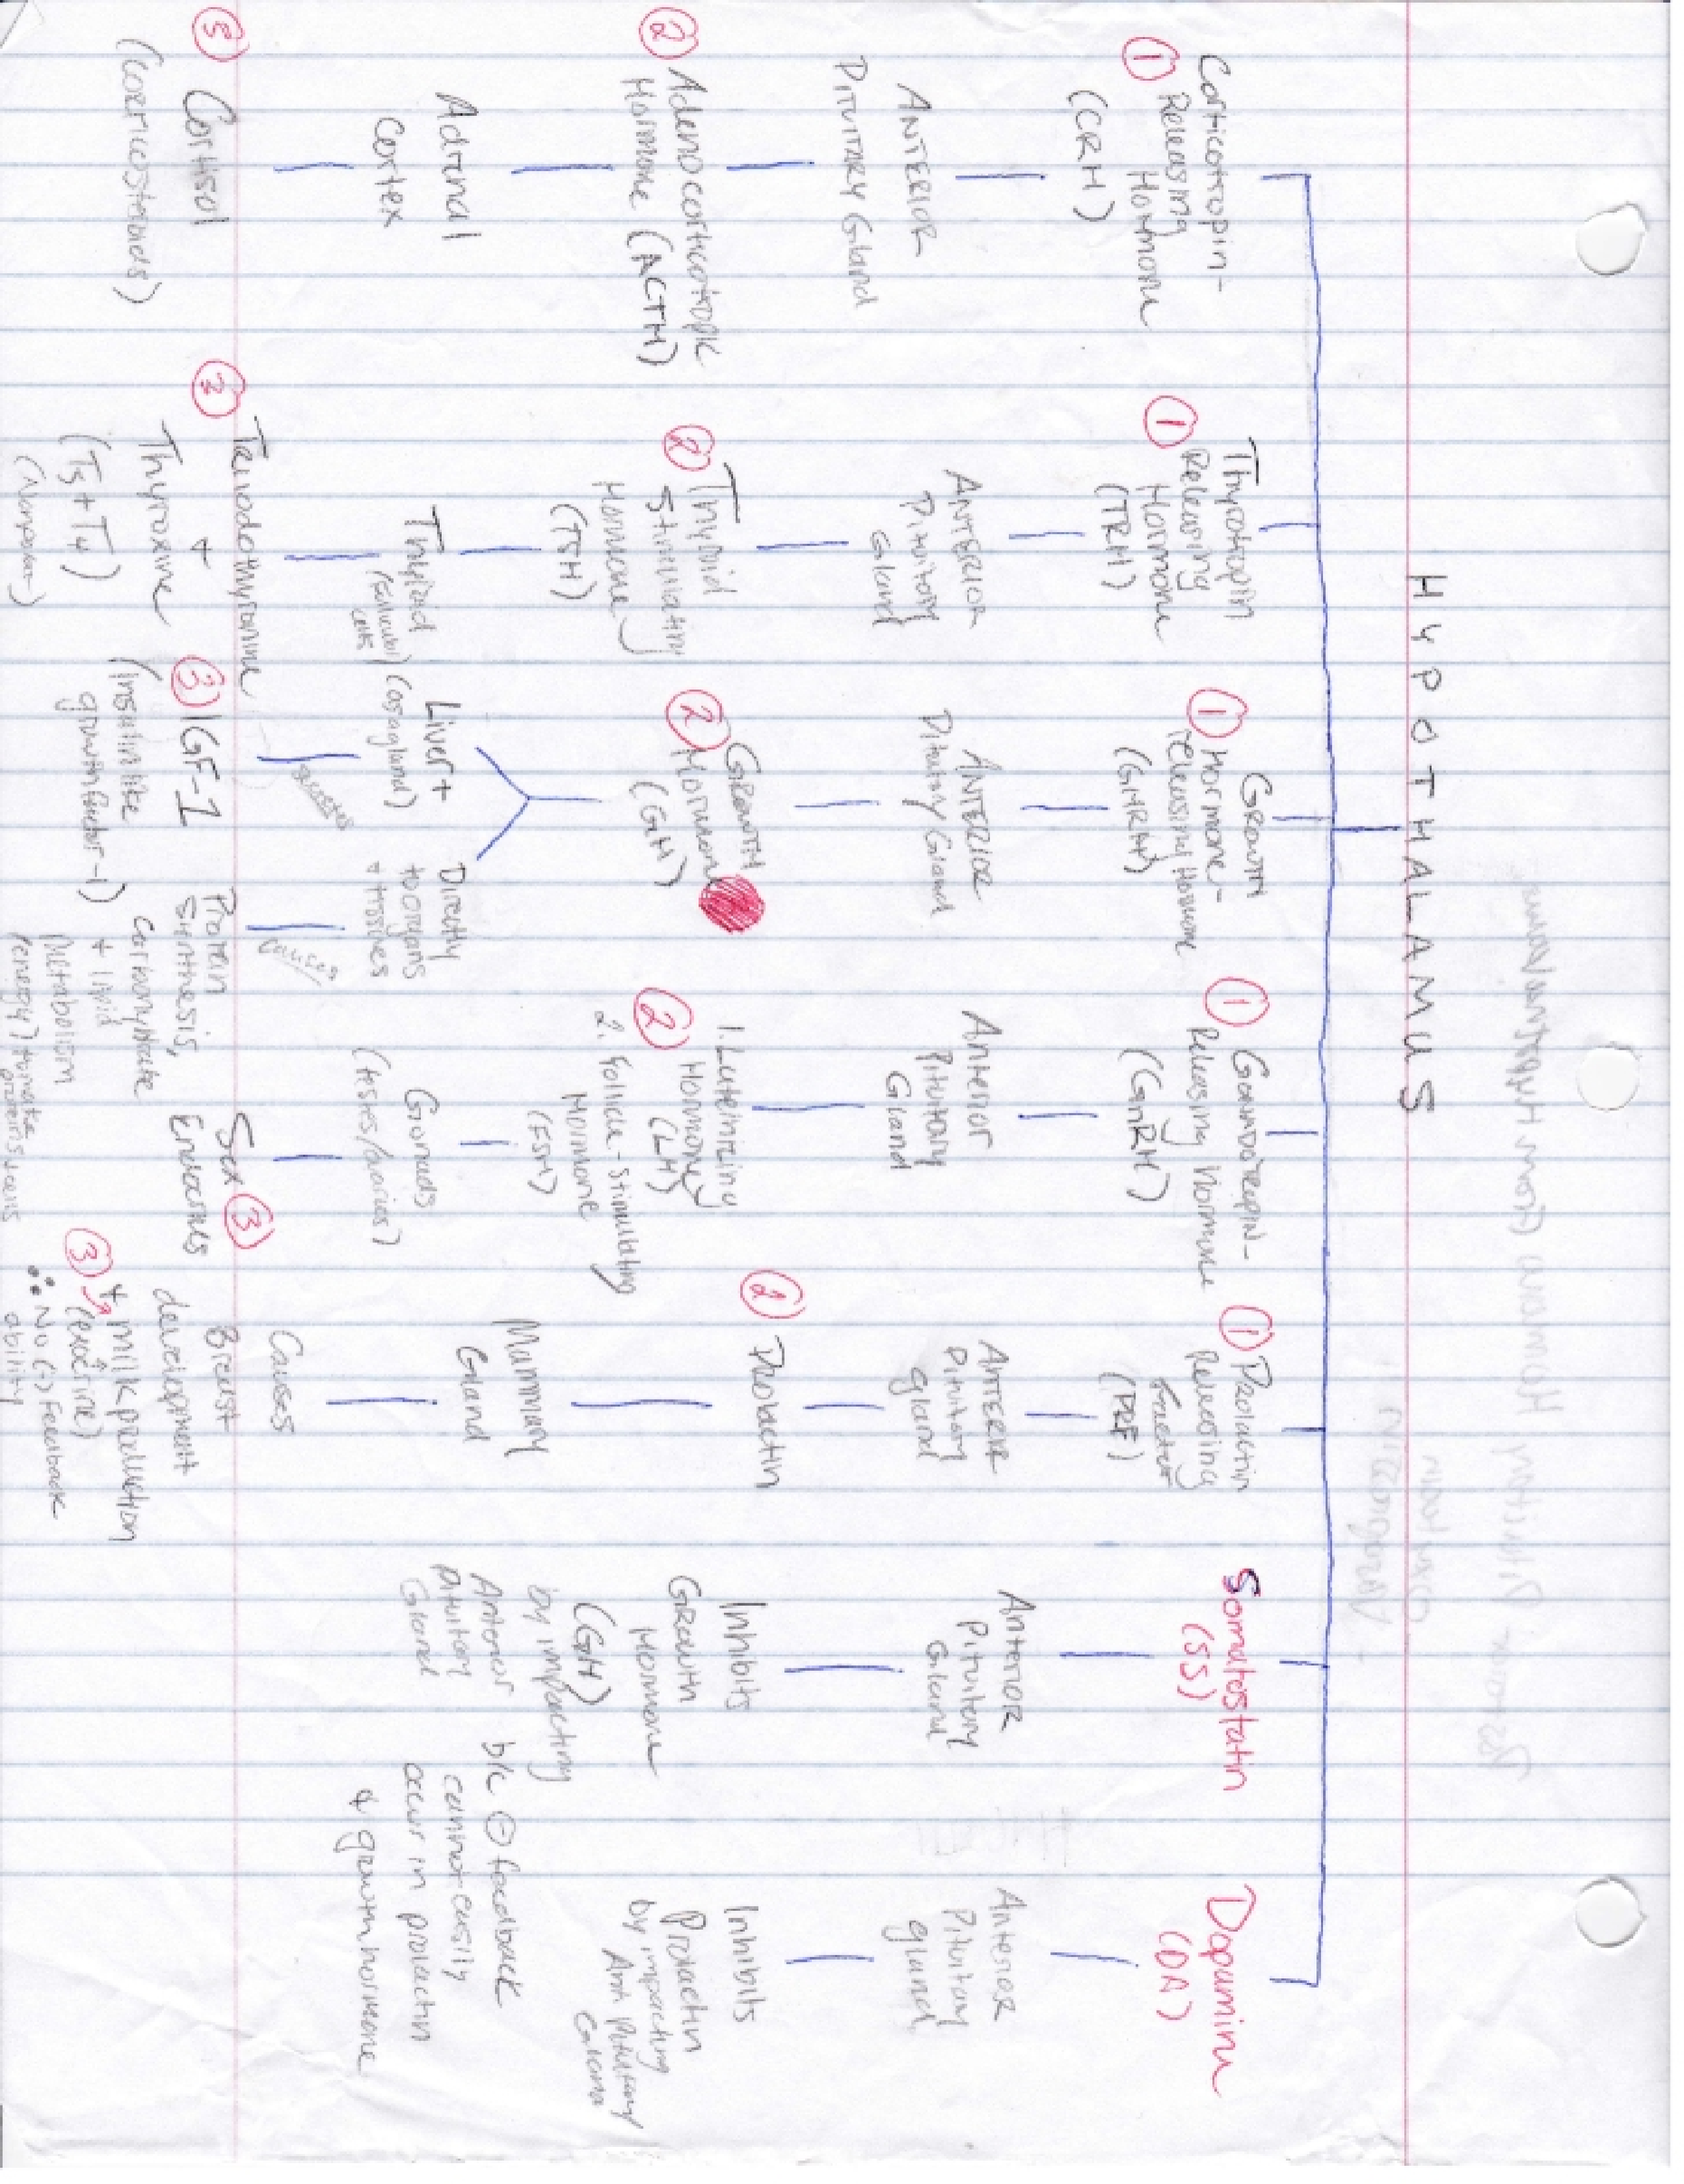 HYPOTHALAMUS
Corticotropin-
① Releasing
Hormone
(CRH)
ANTERIOR
PITUITARY Gland
② Adenocorticotropic
Hormone (ACTH)
Adrenal
Cortex
③ Cortisol
(corticosteroids)
Thyrotropin
① Releasing
Hormone
(TRH)
ANTERIOR
Pituitary
Gland
② Thyroid
Stimulating
Hormone
(TSH)
Thyroid
(follicular
cells)
③ Triiodothyronine
+
Thyroxine
(T3 + T4)
(Nonpolar)
Growth
① Hormone-
releasing Hormone
(GHRH)
ANTERIOR
Pituitary Gland
Growth
② Hormone
(GH)
Liver +
(as a gland)
secretes
③ IGF-1
(insulin like
growth factor-1)
Directly
to organs
+ tissues
causes
Protein
synthesis,
carbohydrate
+ lipid
metabolism
① Gonadotropin-
Releasing Hormone
(GnRH)
Anterior
Pituitary
Gland
1. Luteinizing
② Hormone
(LH)
2. Follicle-Stimulating
Hormone
(FSH)
Gonads
(testes/ovaries)
Sex ③
① Prolactin
Releasing
Factor
(PRF)
ANTERIOR
Pituitary
gland
② Prolactin
Mammary
Gland
Causes
Breast
development
+ milk production
③ → (exocrine)
∴ No (-) Feedback
ability
Somatostatin
(SS)
Anterior
Pituitary
Gland
Inhibits
Growth
Hormone
(GH)
by impacting
Anterior
pituitary
Gland
Dopamine
(DA)
Anterior
Pituitary
gland
Inhibits
Prolactin
by impacting
Ant. Pituitary
Gland
b/c ⊖ feedback
cannot easily
occur in prolactin
+ growth hormone